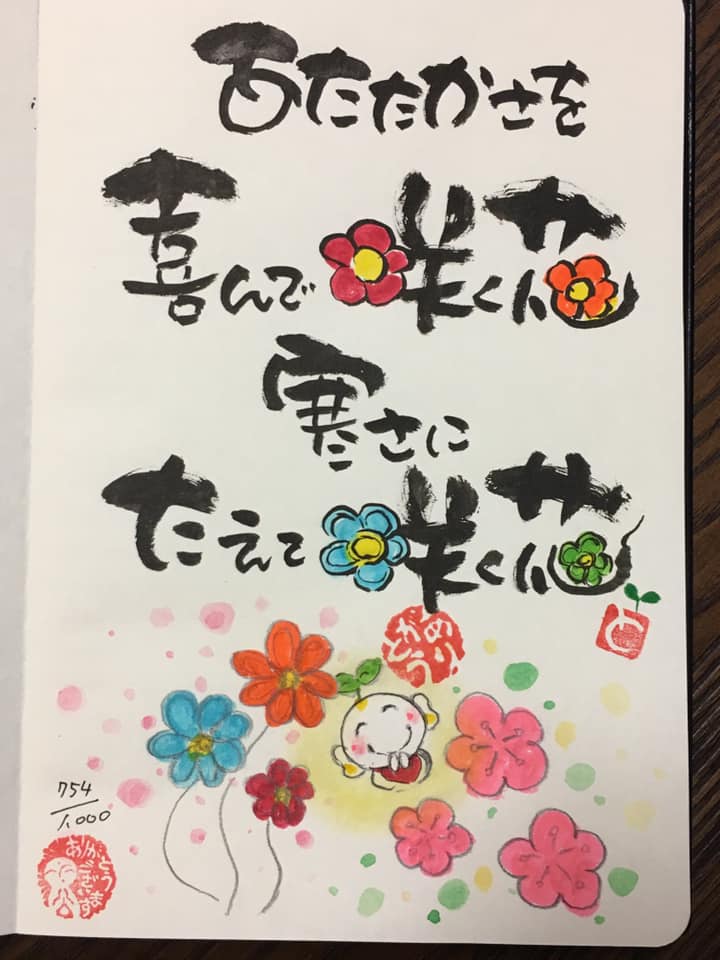 あたたかさを
喜んで咲く花
寒さに
たえて咲く花
と
754/1,000
ありがとうございます